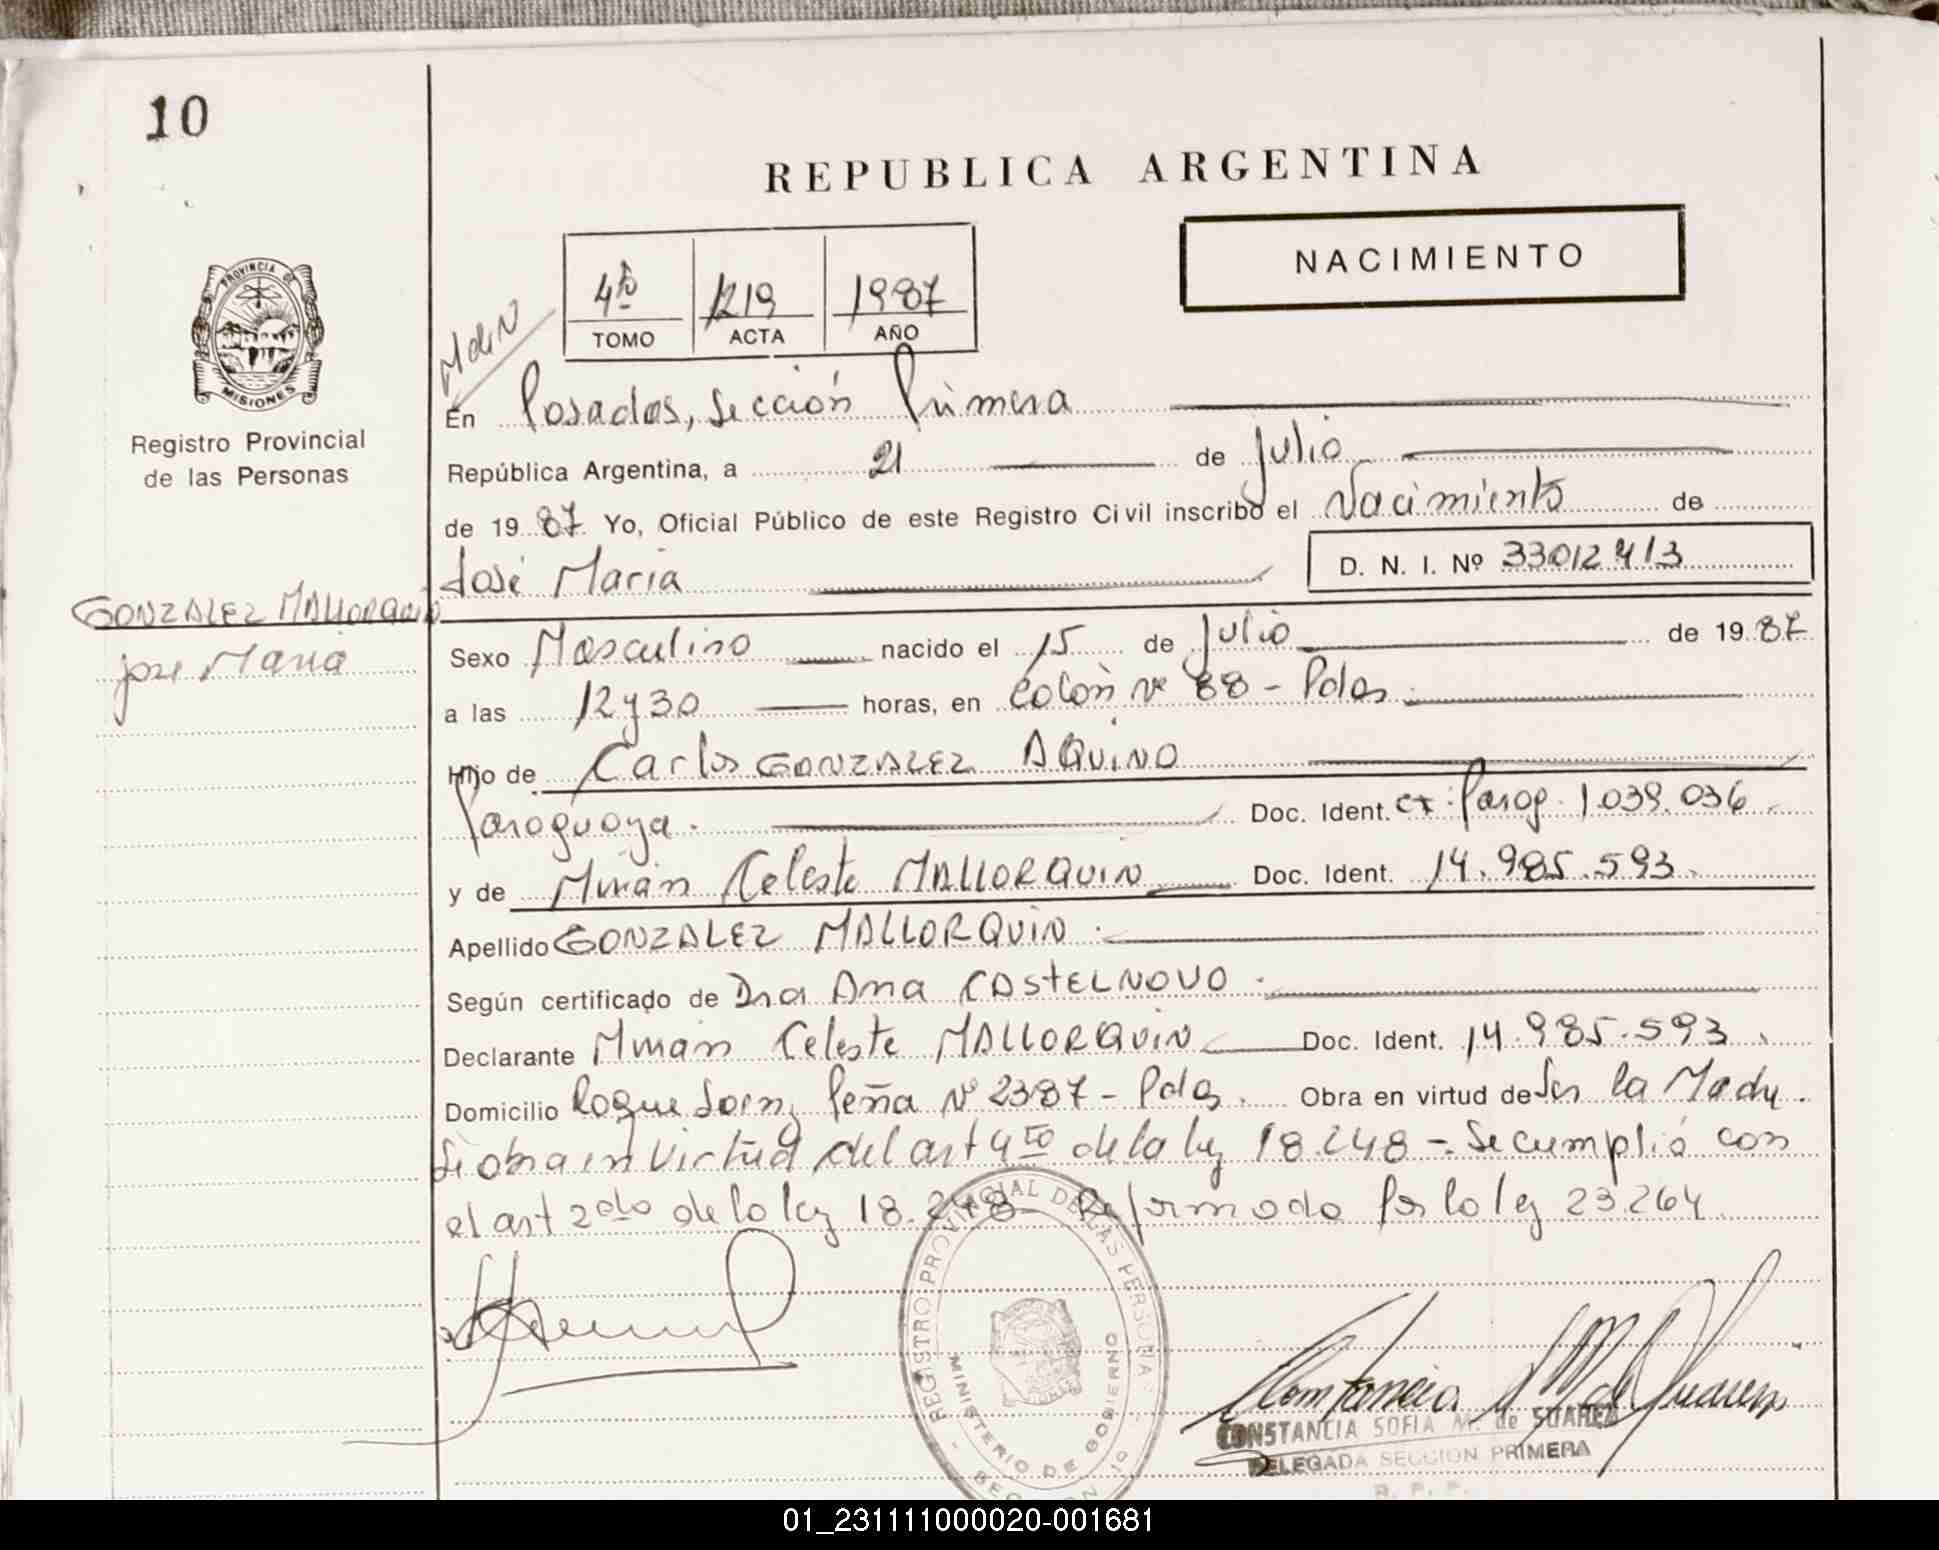 10
REPUBLICA ARGENTINA
NACIMIENTO
4to 1219 1987
TOMO ACTA AÑO
PROVINCIA DE
MISIONES
Registro Provincial
de las Personas
En Posadas, Sección Primera
República Argentina, a 21 de Julio
de 1987 Yo, Oficial Público de este Registro Civil inscribo el Nacimiento de
José María D. N. I. Nº 33012413
GONZALEZ MALLORQUIN
José María
Sexo Masculino nacido el 15 de Julio de 1987
a las 12 y 30 horas, en Colón Nº 88 - Pdas.
Hijo de Carlos GONZALEZ AQUINO
Paraguaya. Doc. Ident. CI: Parag. 1.039.036
y de Mirian Celeste MALLORQUIN Doc. Ident. 14.985.593.
Apellido GONZALEZ MALLORQUIN.
Según certificado de Dra Ana CASTELNOVO.
Declarante Mirian Celeste MALLORQUIN Doc. Ident. 14.985.593.
Domicilio Roque Saenz Peña Nº 2387 - Pdas. Obra en virtud de Ser la Madre.
Se obra en virtud del art 4to de la ley 18.248 - Se cumplió con
el art 2do de la ley 18.248 Reformada por la ley 23.264
REGISTRO PROVINCIAL DE LAS PERSONAS
MINISTERIO DE GOBIERNO
Constancia M de Suarez
CONSTANCIA SOFIA M. de SUAREZ
DELEGADA SECCION PRIMERA
R. P. P.
01_231111000020-001681